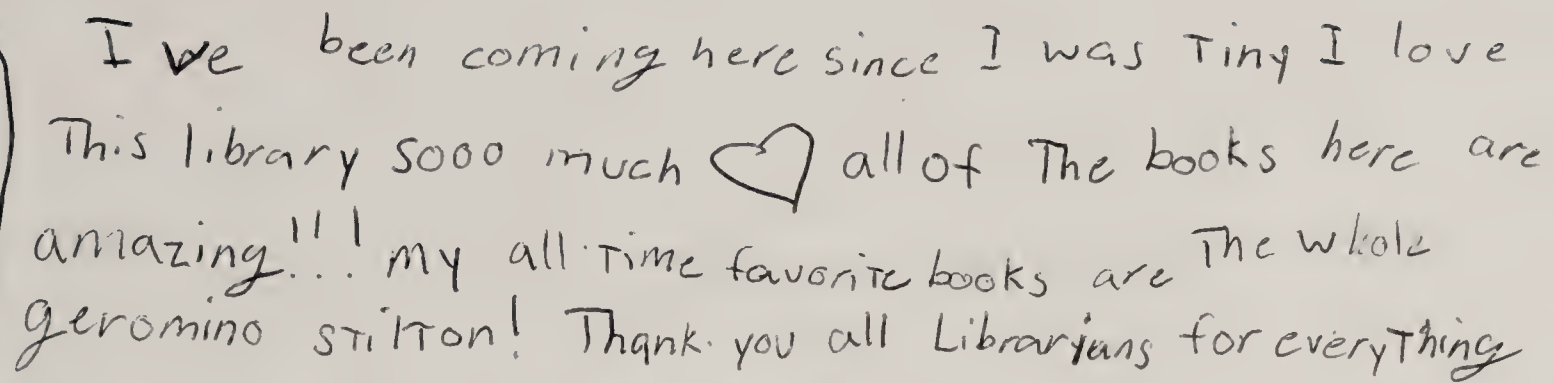 I ve been coming here since I was Tiny I love
This library sooo much ♡ all of The books here are
amazing!!! my all Time favorite books are The whole
geromino stilton! Thank you all Libraryans for everything